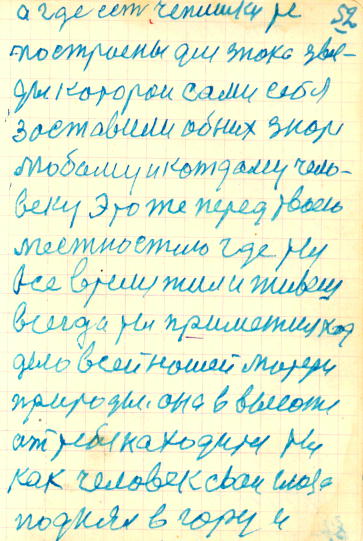 а где ест чепишки не 52
построены для знака звез-
ды которои сами себя
заставили об них знат
любому и каждаму чело-
веку Это же перед твоею
местностию где ты
все время жил и живеш
всегда ты приметил ход
дело всей нашей матери
природы. она в высоте
от тебя находится ты
как человек свои глаза
поднял в гору и